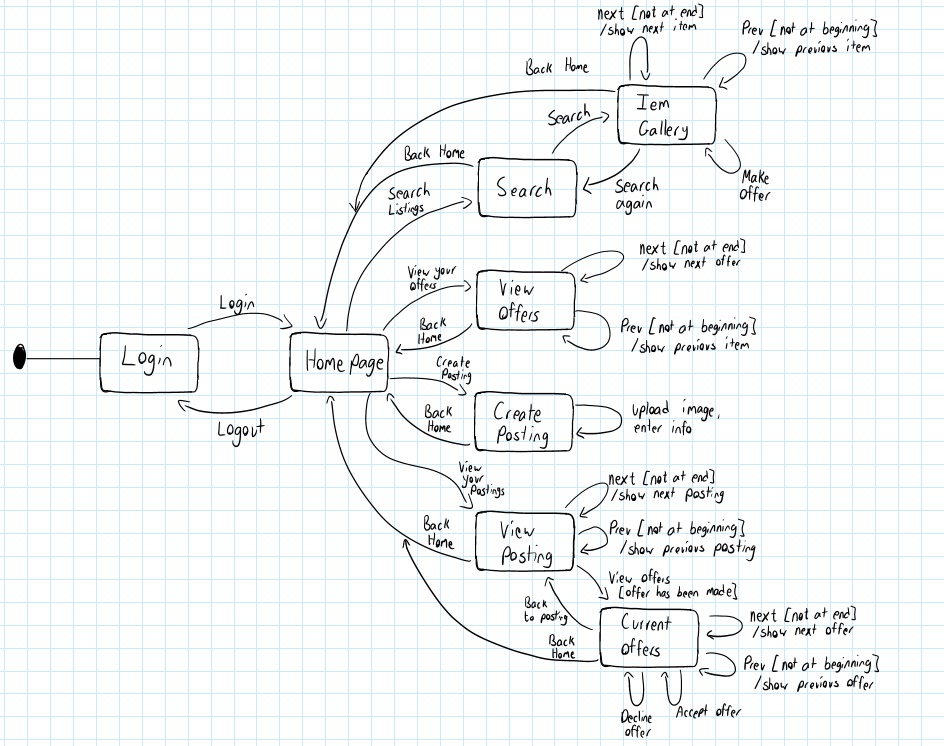 next [not at end]
/show next item
Prev [not at beginning]
/show previous item
Back Home
Iem
Gallery
Search
Back Home
Search
Search
again
Make
Offer
Search
Listings
next [not at end]
/show next offer
View your
Offers
View
Offers
Login
Back
Home
Prev [not at beginning]
/show previous item
Login
Home Page
Create
Posting
Logout
Back
Home
Create
Posting
Upload image,
enter info
View
your
Postings
next [not at end]
/show next posting
Back
Home
View
Posting
Prev [not at beginning]
/show previous posting
View offers
[offer has been made]
Back
to posting
Current
offers
next [not at end]
/show next offer
Back
Home
Prev [not at beginning]
/show previous offer
Decline
offer
Accept offer